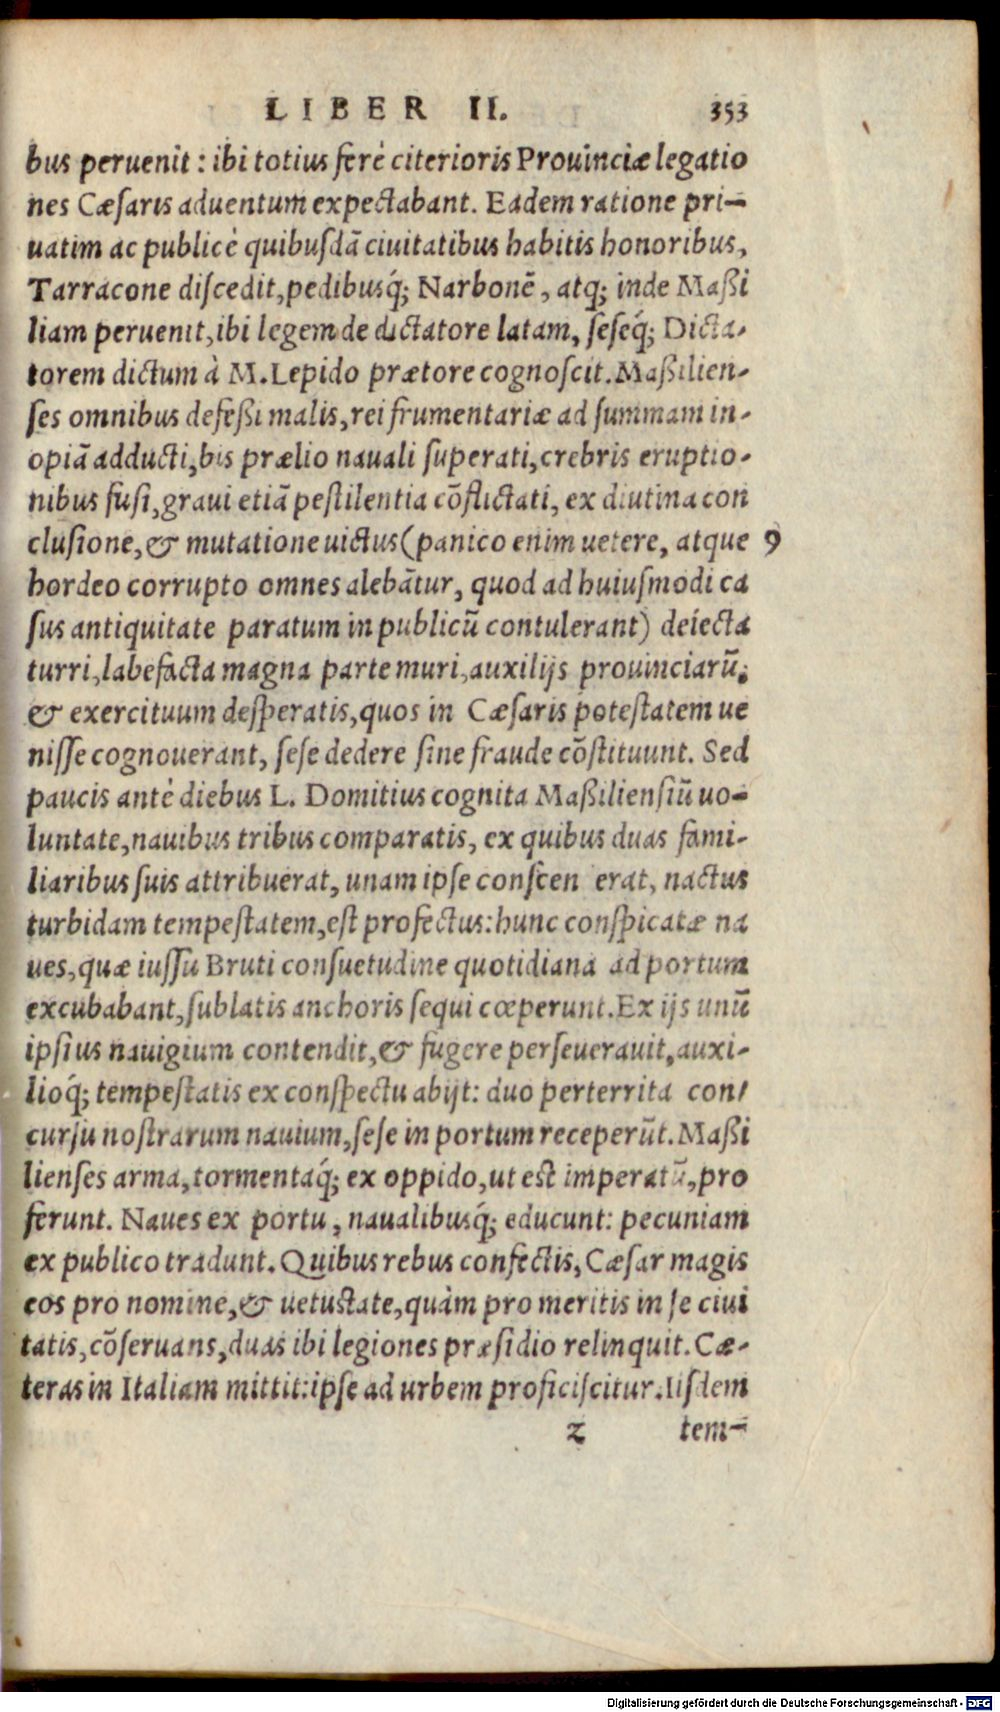 LIBER II. 353
bus peruenit : ibi totius ferè citerioris Prouinciæ legatio
nes Cæſaris aduentum expectabant. Eadem ratione pri-
uatim ac publicè quibuſdā ciuitatibus habitis honoribus,
Tarracone diſcedit, pedibusq́; Narbonē, atq; inde Maßi
liam peruenit, ibi legem de dictatore latam, ſeſeq́; Dicta-
torem dictum à M. Lepido prætore cognoſcit. Maßilien-
ſes omnibus defeßi malis, rei frumentariæ ad ſummam in-
opiā adducti, bis prælio nauali ſuperati, crebris eruptio-
nibus fuſi, graui etiā peſtilentia cōflictati, ex diutina con
cluſione, & mutatione uictus (panico enim uetere, atque 9
hordeo corrupto omnes alebātur, quod ad huiuſmodi ca
ſus antiquitate paratum in publicū contulerant) deiecta
turri, labefacta magna parte muri, auxilijs prouinciarū,
& exercituum deſperatis, quos in Cæſaris poteſtatem ue
niſſe cognouerant, ſeſe dedere ſine fraude cōſtituunt. Sed
paucis antè diebus L. Domitius cognita Maßilienſiū uo-
luntate, nauibus tribus comparatis, ex quibus duas fami-
liaribus ſuis attribuerat, unam ipſe conſcen erat, nactus
turbidam tempeſtatem, eſt profectus: hunc conſpicatæ na
ues, quæ iuſſu Bruti conſuetudine quotidiana ad portum
excubabant, ſublatis anchoris ſequi cœperunt. Ex ijs unū
ipſius nauigium contendit, & fugere perſeuerauit, auxi-
lioq́; tempeſtatis ex conſpectu abijt: duo perterrita con-
curſu noſtrarum nauium, ſeſe in portum receperūt. Maßi
lienſes arma, tormentaq́; ex oppido, ut eſt imperatū, pro
ferunt. Naues ex portu, naualibusq́; educunt: pecuniam
ex publico tradunt. Quibus rebus confectis, Cæſar magis
eos pro nomine, & uetuſtate, quàm pro meritis in ſe ciui
tatis, cōſeruans, duas ibi legiones præſidio relinquit. Cæ-
teras in Italiam mittit: ipſe ad urbem proficiſcitur. Iiſdem
z tem-
Digitalisierung gefördert durch die Deutsche Forschungsgemeinschaft - DFG